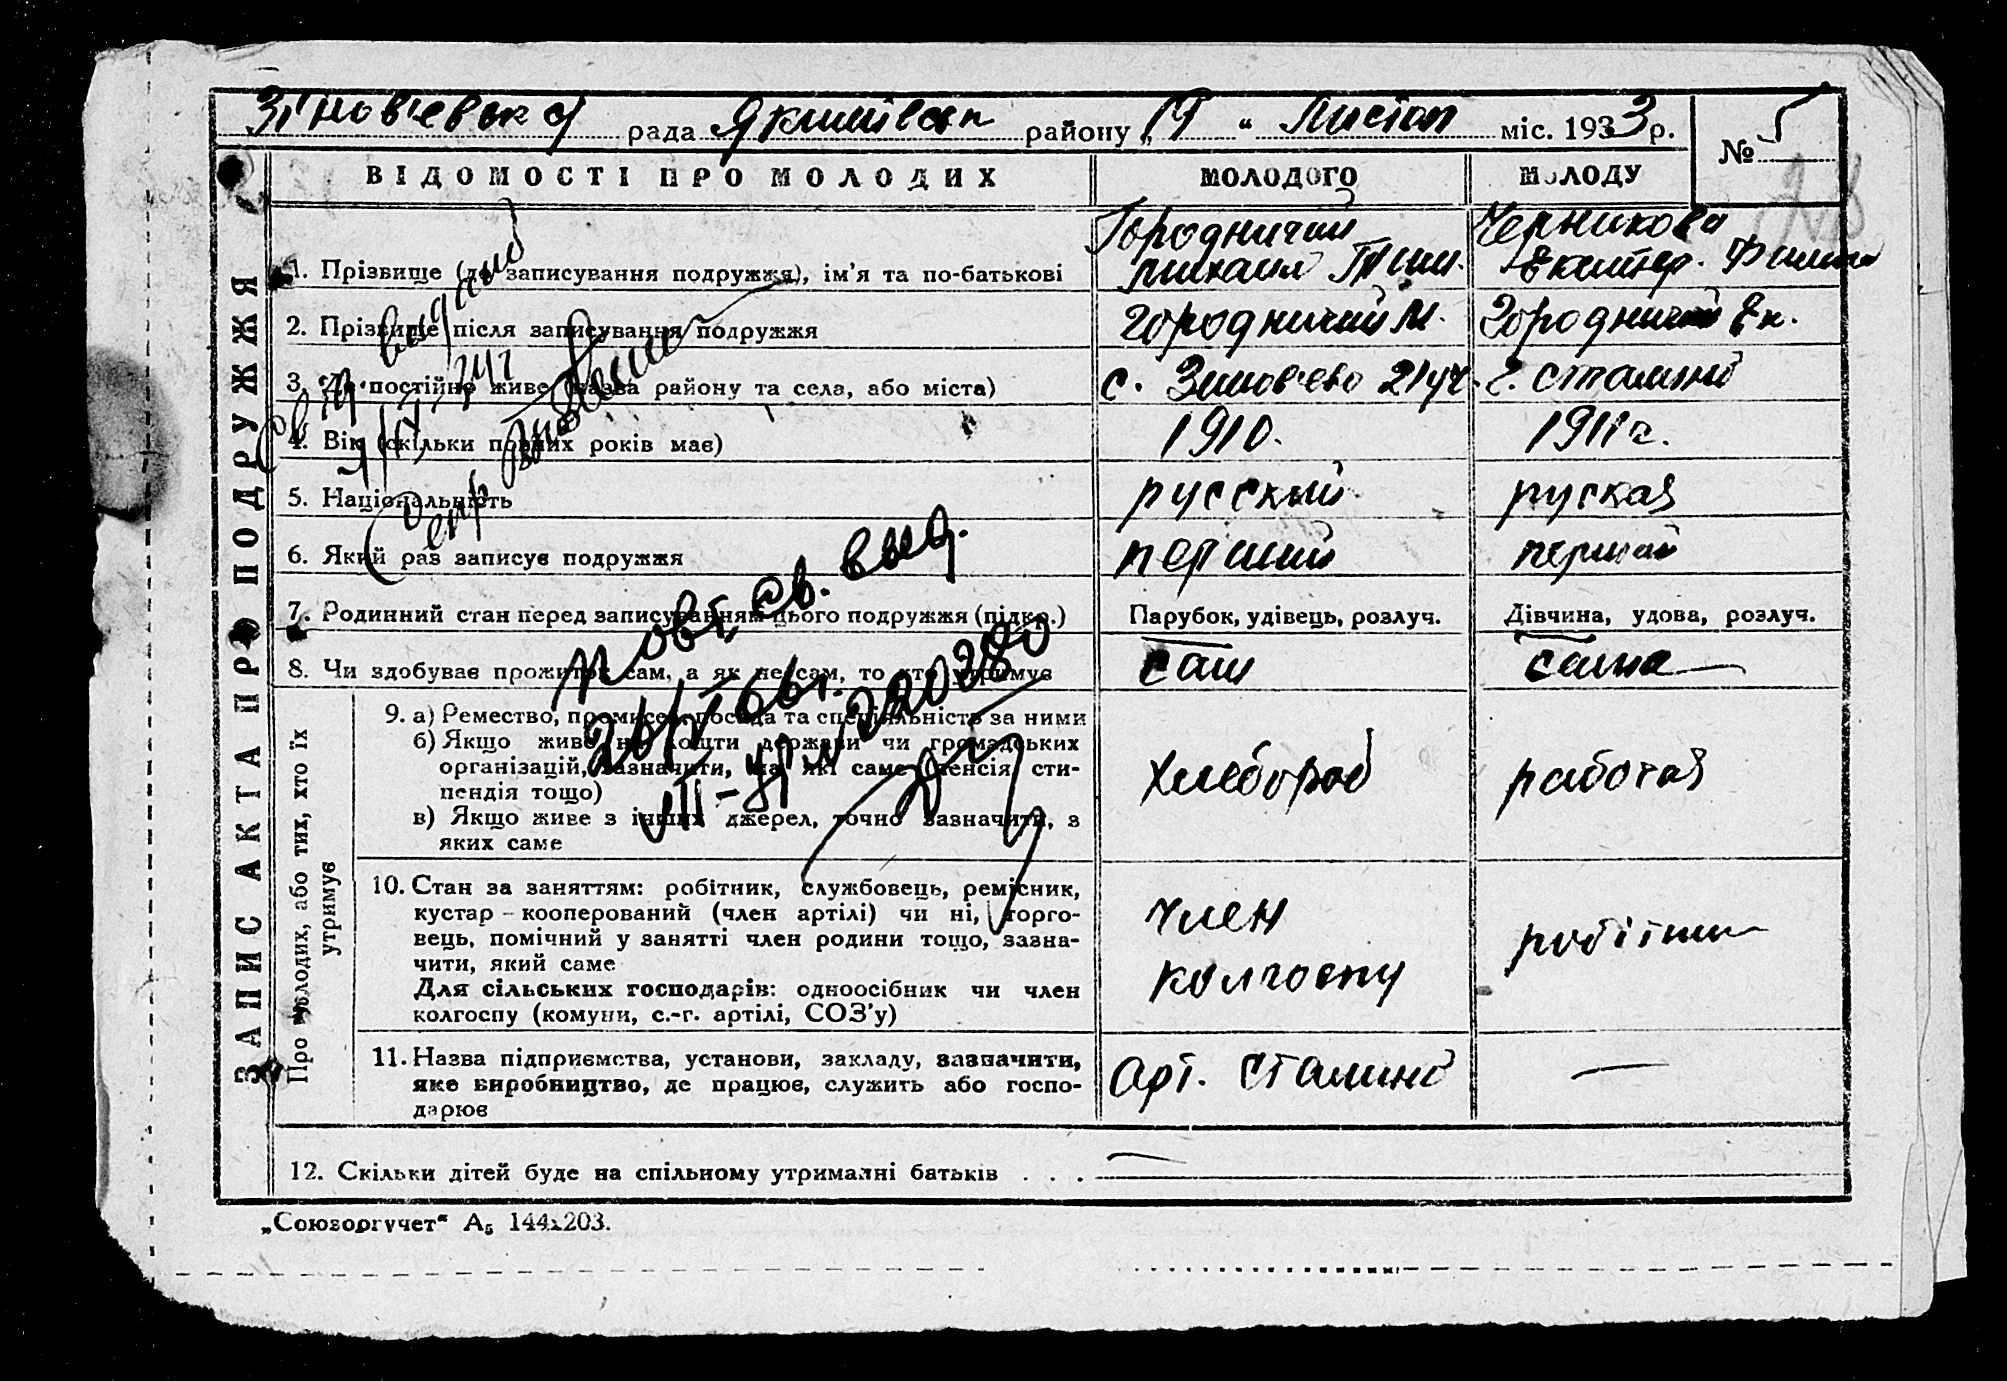 Зіновʼевська рада Якимівськ району „19“ Листоп міс. 1933 р.
№ 5
ВІДОМОСТІ ПРО МОЛОДИХ МОЛОДОГО МОЛОДУ
ЗАПИС АКТА ПРО ПОДРУЖЖЯ
1. Прізвище (до записування подружжя), ім’я та по-батькові
Городничий
Михаил Тим.
Черникова
Екатер. Филип
2. Прізвище після записування подружжя Городничий М. Городничий Ек.
3. Де постійно живе (назва району та села, або міста) с. Зиновʼево 21 уч. г. Сталино
4. Вік (скільки повних років має) 1910. 1911 г.
5. Національність русский руская
6. Який раз записує подружжя перший першай
7. Родинний стан перед записуванням цього подружжя (підкр.) Парубок, удівець, розлуч. Дівчина, удова, розлуч.
8. Чи здобуває прожиток сам, а як не сам, то хто утримує сам сама
Про молодих, або тих, хто їх
утримує
9. а) Ремество, промисел, посада та спеціяльність за ними
б) Якщо живе на кошти держави чи громадських
організацій, зазначити, на які саме (пенсія, сти-
пендія тощо)
в) Якщо живе з інших джерел, точно зазначити, з
яких саме
хлебороб
работая
10. Стан за заняттям: робітник, службовець, ремісник,
кустар – кооперований (член артілі) чи ні, торго-
вець, помічний у занятті член родини тощо, зазна-
чити, який саме
Для сільських господарів: одноосібник чи член
колгоспу (комуни, с.-г. артілі, СОЗ’у)
член
колгоспу
робітник
11. Назва підприємства, установи, закладу, зазначити,
яке виробництво, де працює, служить або госпо-
дарює
Арт. Сталино —
12. Скільки дітей буде на спільному утриманні батьків . . . —
Повт. св. выд.
„Союзоргучет“ А5 144х203.